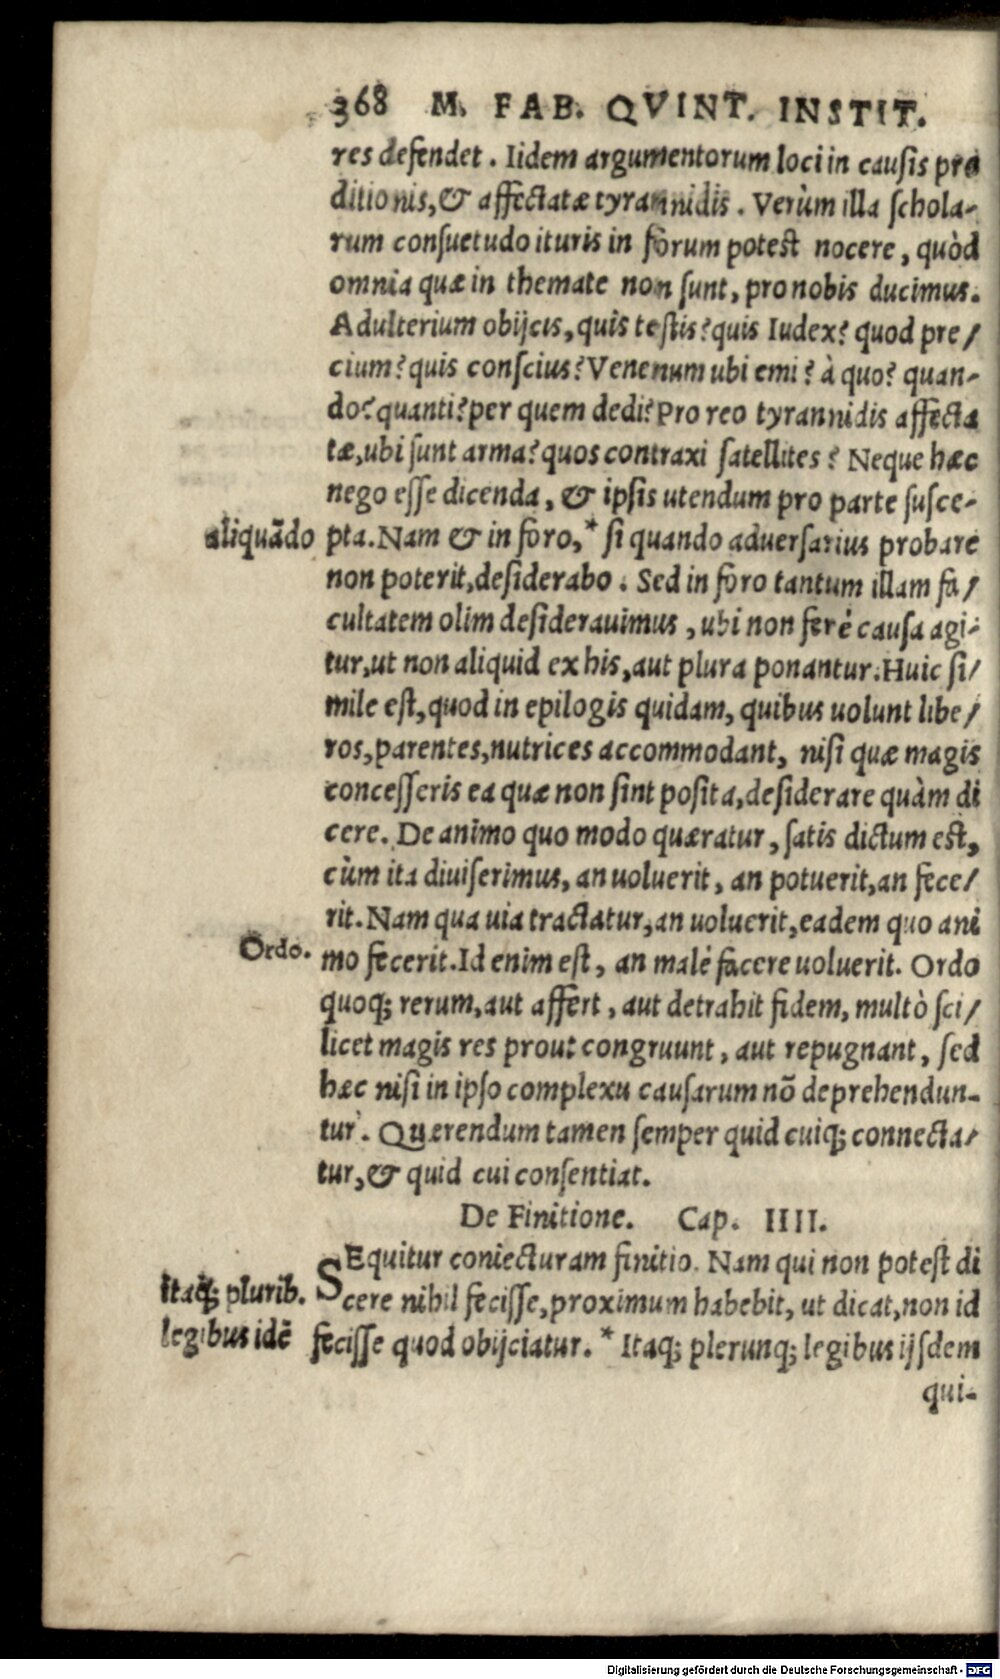 368 M. FAB. QVINT. INSTIT.
res defendet. Iidem argumentorum loci in causis pro
ditionis, & affectatæ tyrannidis. Verùm illa schola-
rum consuetudo ituris in forum potest nocere, quòd
omnia quæ in themate non sunt, pro nobis ducimus.
Adulterium obijcis, quis testis? quis Iudex? quod pre/
cium? quis conscius? Venenum ubi emi? à quo? quan-
do? quanti? per quem dedi? Pro reo tyrannidis affecta
tæ, ubi sunt arma? quos contraxi satellites? Neque hæc
nego esse dicenda, & ipsis utendum pro parte susce-
aliquãdo
pta. Nam & in foro,* si quando aduersarius probare
non poterit, desiderabo. Sed in foro tantum illam fa/
cultatem olim desiderauimus, ubi non ferè causa agi-
tur, ut non aliquid ex his, aut plura ponantur. Huic si/
mile est, quod in epilogis quidam, quibus uolunt libe/
ros, parentes, nutrices accommodant, nisi quæ magis
concesseris ea quæ non sint posita, desiderare quàm di
cere. De animo quo modo quæratur, satis dictum est,
cùm ita diuiserimus, an uoluerit, an potuerit, an fece/
rit. Nam qua uia tractatur, an uoluerit, eadem quo ani
Ordo.
mo fecerit. Id enim est, an malè facere uoluerit. Ordo
quoq; rerum, aut affert, aut detrahit fidem, multò sci/
licet magis res prout congruunt, aut repugnant, sed
hæc nisi in ipso complexu causarum nõ deprehendun-
tur. Quærendum tamen semper quid cuiq; connecta/
tur, & quid cui consentiat.
De Finitione. Cap. IIII.
SEquitur coniecturam finitio. Nam qui non potest di
Itaq; plurib.
cere nihil fecisse, proximum habebit, ut dicat, non id
legibus idẽ
fecisse quod obijciatur.* Itaq; plerunq; legibus ijsdem
qui-
Digitalisierung gefördert durch die Deutsche Forschungsgemeinschaft - DFG